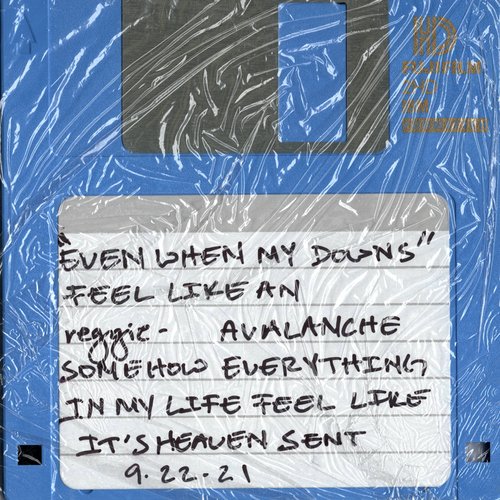 FUJIFILM
"EVEN WHEN MY DOWNS"
FEEL LIKE AN
reggie - AVALANCHE
SOMEHOW EVERYTHING
IN MY LIFE FEEL LIKE
IT'S HEAVEN SENT
9.22.21